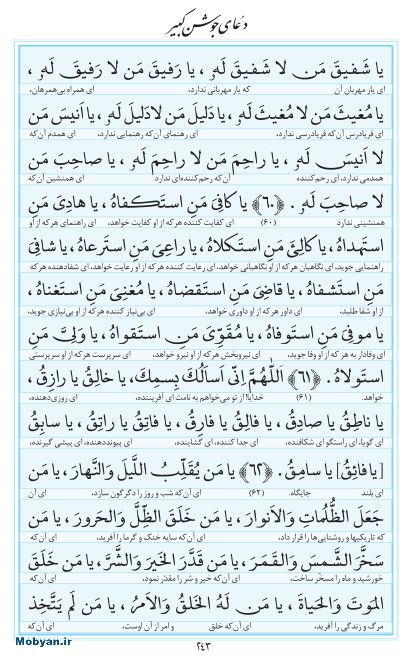 دعای جوشن کبیر
یا شَفیقَ مَن لا شَفیقَ لَهُ ، یا رَفیقَ مَن لا رَفیقَ لَهُ ،
ای یار مهربان آن که یار مهربانی ندارد، ای همراه بی‌همرهان،
یا مُغیثَ مَن لا مُغیثَ لَهُ ، یا دَلیلَ مَن لا دَلیلَ لَهُ ، یا اَنیسَ مَن
ای فریادرس آن که فریادرسی ندارد، ای رهنمای آن که رهنمایی ندارد، ای همدم آن که
لا اَنیسَ لَهُ ، یا راحِمَ مَن لا راحِمَ لَهُ ، یا صاحِبَ مَن
همدمی ندارد، ای رحم‌کننده آن که رحم‌کننده‌ای ندارد ای همنشین آن که
لا صاحِبَ لَهُ . ﴿۶۰﴾ یا کافِیَ مَنِ استَکفاهُ ، یا هادِیَ مَنِ
همنشینی ندارد (۶۰) ای کفایت کننده هر که از او کفایت خواهد، ای راهنمای هر که از او
استَهداهُ ، یا کالِئَ مَنِ استَکلاهُ ، یا راعِیَ مَنِ استَرعاهُ ، یا شافِیَ
راهنمایی جوید، ای نگاهبان هر که از او نگاهبانی خواهد، ای رعایت کننده هر که از او رعایت خواهد، ای شفادهنده هر که
مَنِ استَشفاهُ ، یا قاضِیَ مَنِ استَقضاهُ ، یا مُغنِیَ مَنِ استَغناهُ ،
از او شفا طلبد، ای داور هر که از او داوری خواهد، ای بی‌نیاز کننده هر که از او بی‌نیازی جوید،
یا موفِیَ مَنِ استَوفاهُ ، یا مُقَوِّیَ مَنِ استَقواهُ ، یا وَلِیَّ مَنِ
ای وفادار به هر که از او وفا جوید، ای نیروبخش هر که از او نیرو خواهد، ای سرپرست هر که از او سرپرستی
استَولاهُ . ﴿۶۱﴾ اَللّٰهُمَّ اِنّی اَسأَلُکَ بِسمِکَ ، یا خالِقُ یا رازِقُ ،
خواهد. (۶۱) خدایا! از تو می‌خواهم به نامت ای آفریننده، ای روزی‌دهنده،
یا ناطِقُ یا صادِقُ ، یا فالِقُ یا فارِقُ ، یا فاتِقُ یا راتِقُ ، یا سابِقُ
ای گویا، ای راستگو ای شکافنده، ای جدا کننده، ای گشاینده، ای پیونددهنده، ای پیشی گیرنده،
[یا فائِقُ] یا سامِقُ . ﴿۶۲﴾ یا مَن یُقَلِّبُ اللَّیلَ وَالنَّهارَ ، یا مَن
ای بلند جایگاه. (۶۲) ای آن که شب و روز را دگرگون سازد، ای آن
جَعَلَ الظُّلُماتِ وَالاَنوارَ ، یا مَن خَلَقَ الظِّلَّ وَالحَرورَ ، یا مَن
که تاریکیها و روشنایی‌ها را قرار داد، ای آن که سایه خنک و گرما را آفرید، ای آن که
سَخَّرَ الشَّمسَ وَالقَمَرَ ، یا مَن قَدَّرَ الخَیرَ وَالشَّرَّ ، یا مَن خَلَقَ
خورشید و ماه را مسخّر ساخت، ای آن که خیر و شر را مقدّر نمود، ای آن که
المَوتَ وَالحَیاةَ ، یا مَن لَهُ الخَلقُ وَالاَمرُ ، یا مَن لَم یَتَّخِذ
مرگ و زندگی را آفرید، ای آن که خلق و امر از آن اوست، ای آن که
۲۴۳
Mobyan.ir